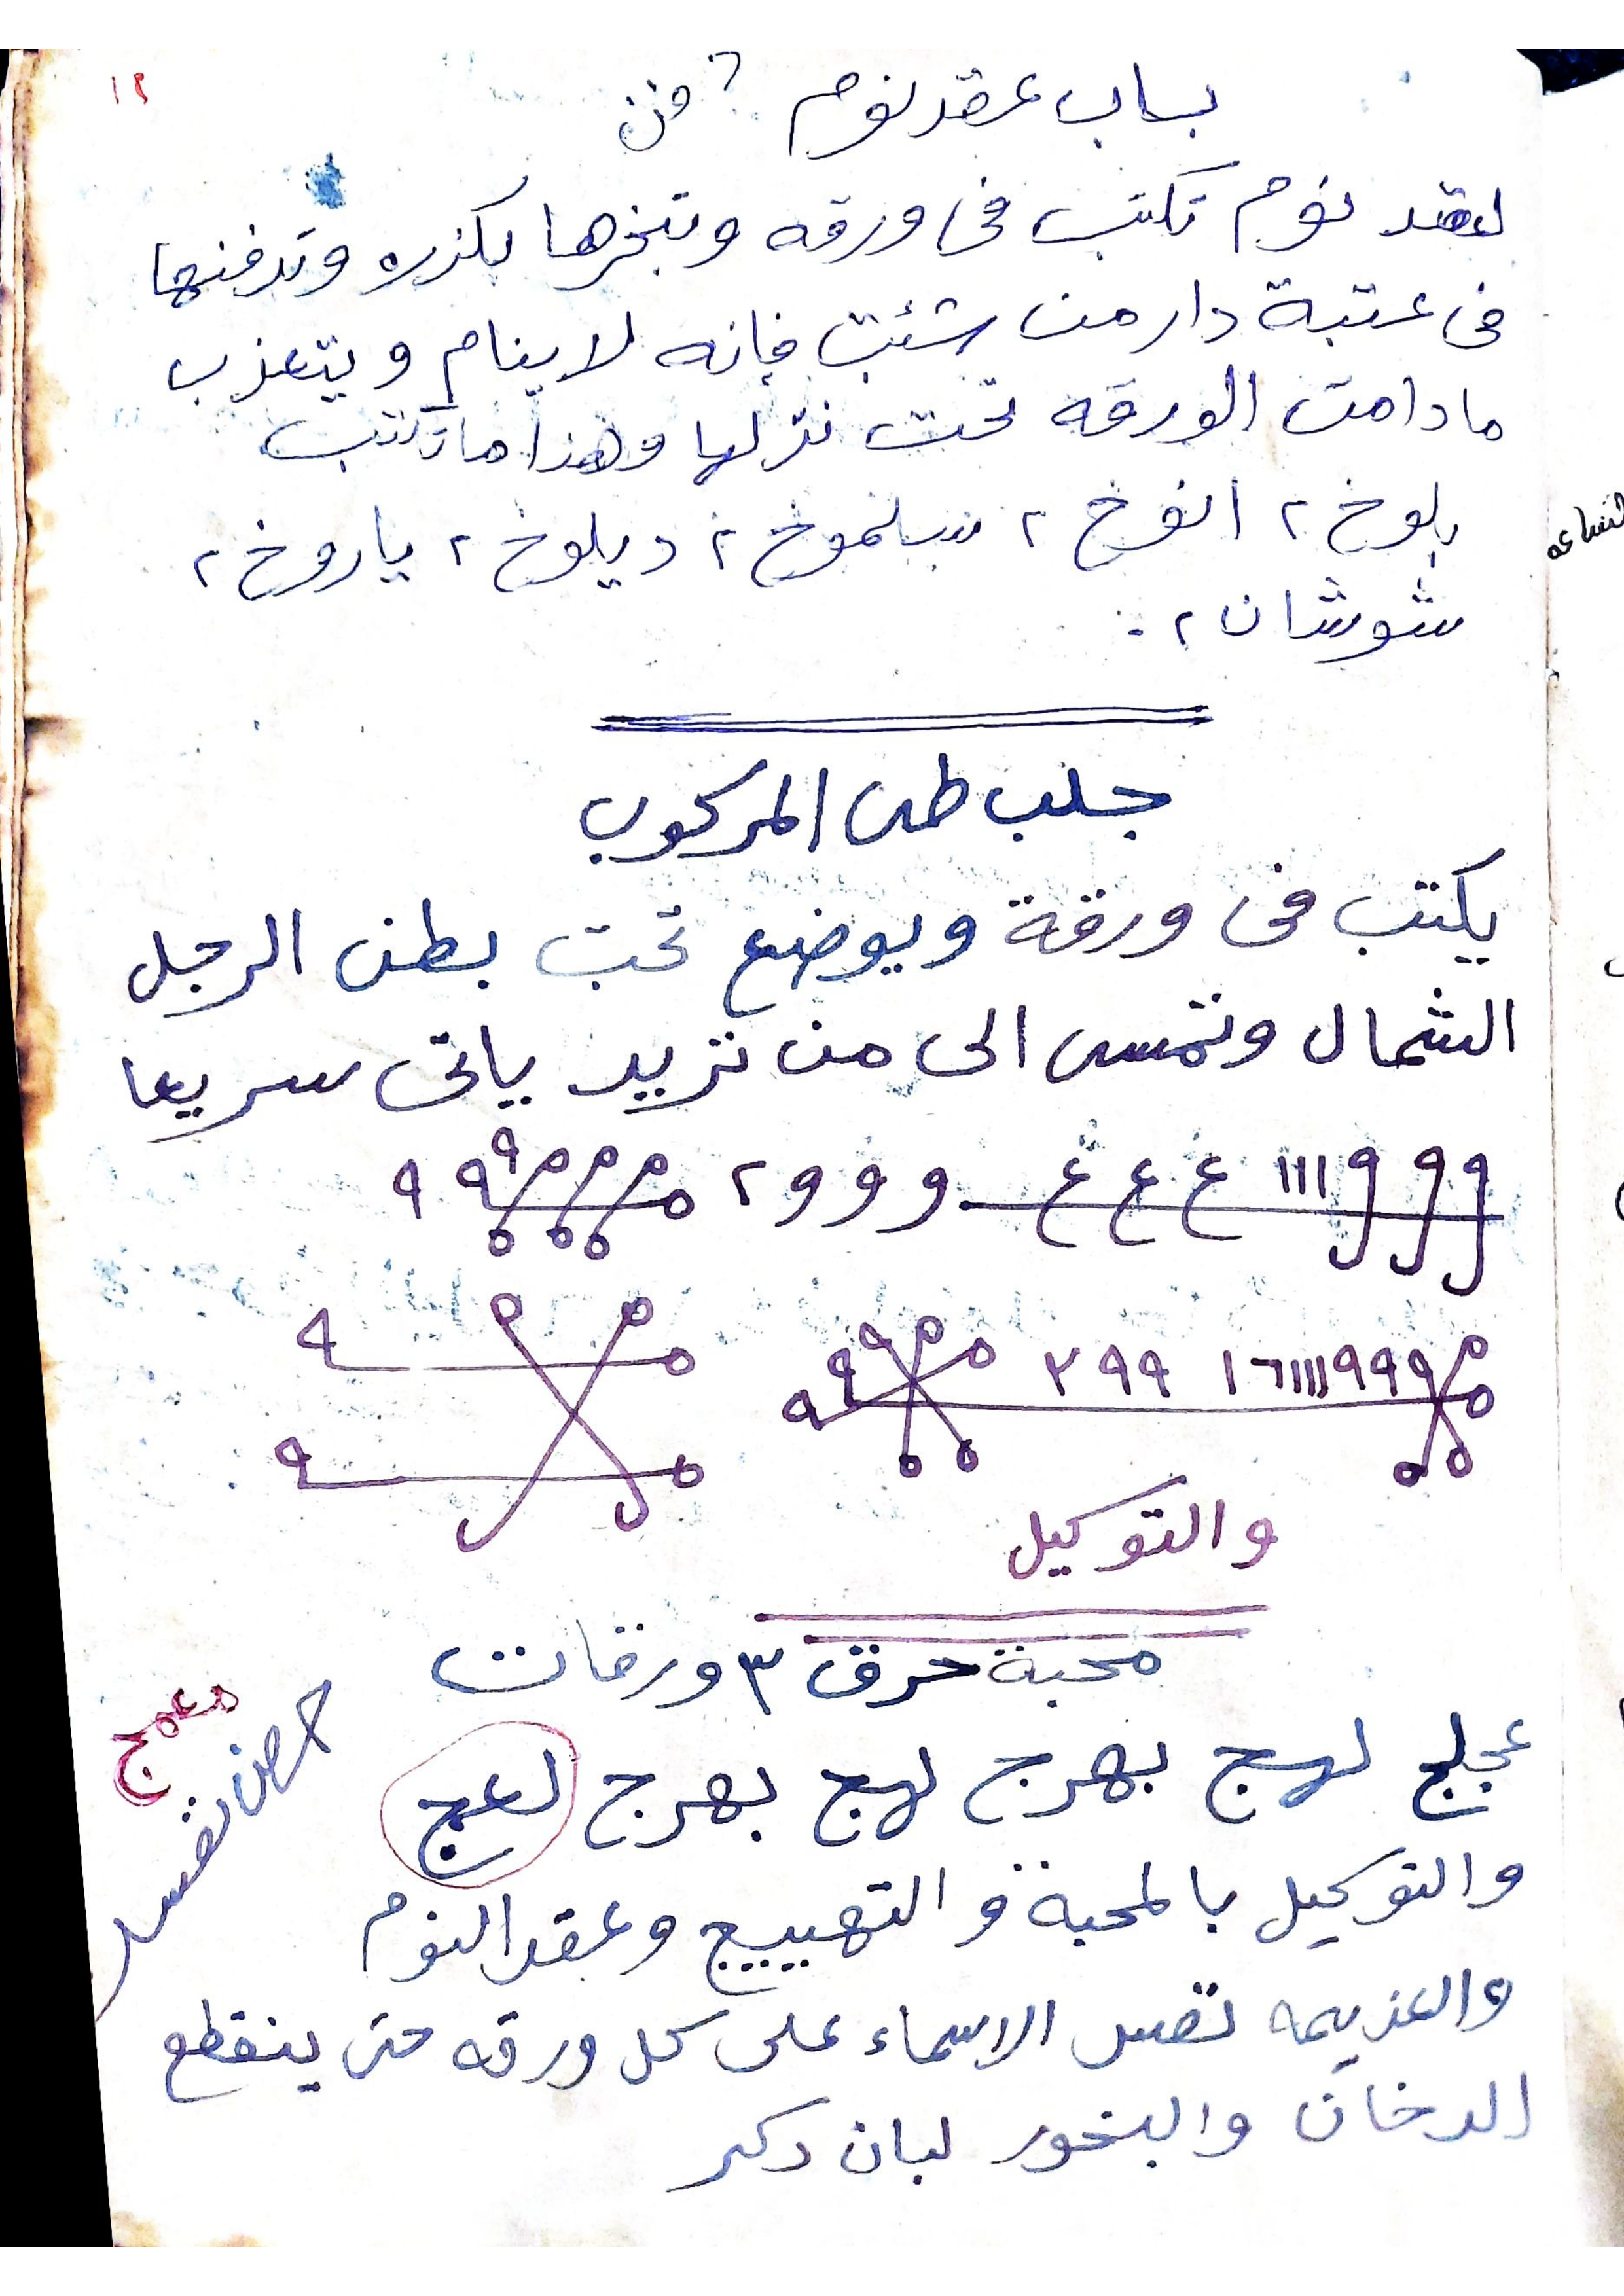 ١٢
باب عقد نوم ؟ دفن
لعقد نوم تكتب فى ورقه وتبخرها بكزره وتدفنها
فى عتبة دار من شئت فإنه لا ينام ويتعذب
مادامت الورقه تحت نزلها وهذا ما تكتب
بلوخ ٢ انوخ ٢ سلموخ ٢ ديلوخ ٢ ياروخ ٢
شوشان ٢ .
جلب طى المركوب
يكتب فى ورقة ويوضع تحت بطن الرجل
الشمال وتمسى الى من تريد ياتى سريعا
١١١ ع ع ع و و و ٢ ٩ ٩
١٦١١١١٩٩٩ ٩٩ ٢
والتوكيل
محبة حرق ٣ ورقات
عجلج لهج بهرج لهج بهرج لعج
معمج
والتوكيل بالمحبة و التهييج وعقد النوم
والعزيمه نفس الاسماء على كل ورقه حتى ينقطع
الدخان والبخور لبان دكر